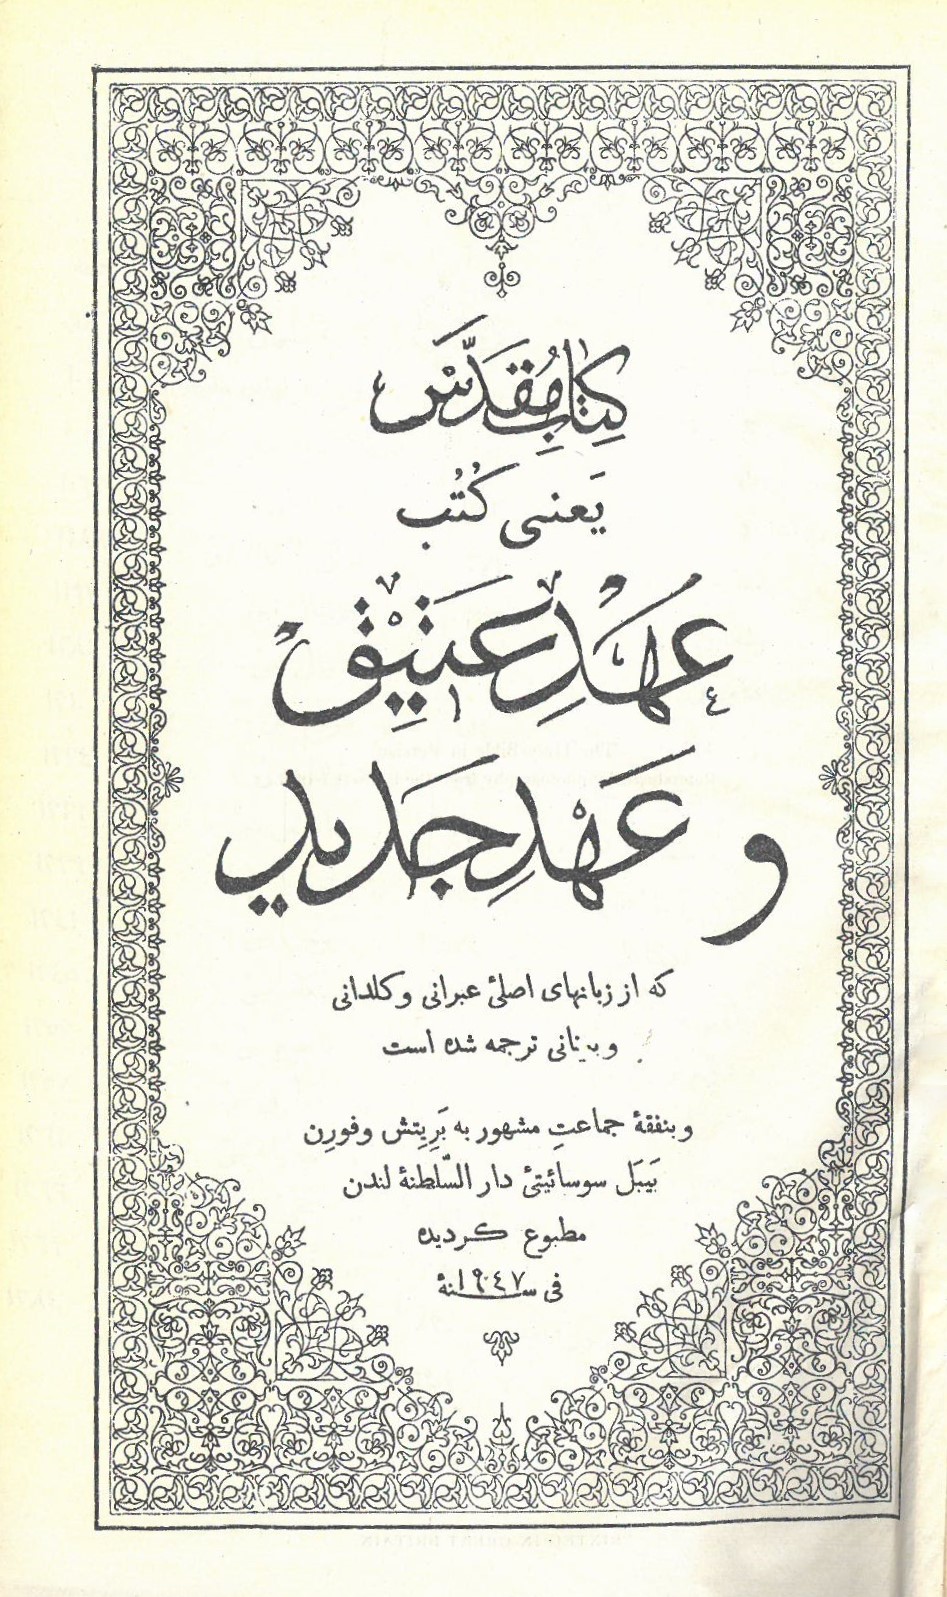 کِتابِ مُقَدَّس
یَعنی کُتُب
عَهدِ عَتیق
و عَهدِ جَدید
که از زبانهای اصلئ عبرانی و کلدانی
و یونانی ترجمه شده است
و بنفقهٔ جماعتِ مشهور به بَرِیتِش و فورِن
بَیبَل سوسائیتئ دار السّلطنهٔ لندن
مطبوع گردیده
فی سنهٔ ۱۹٤۷